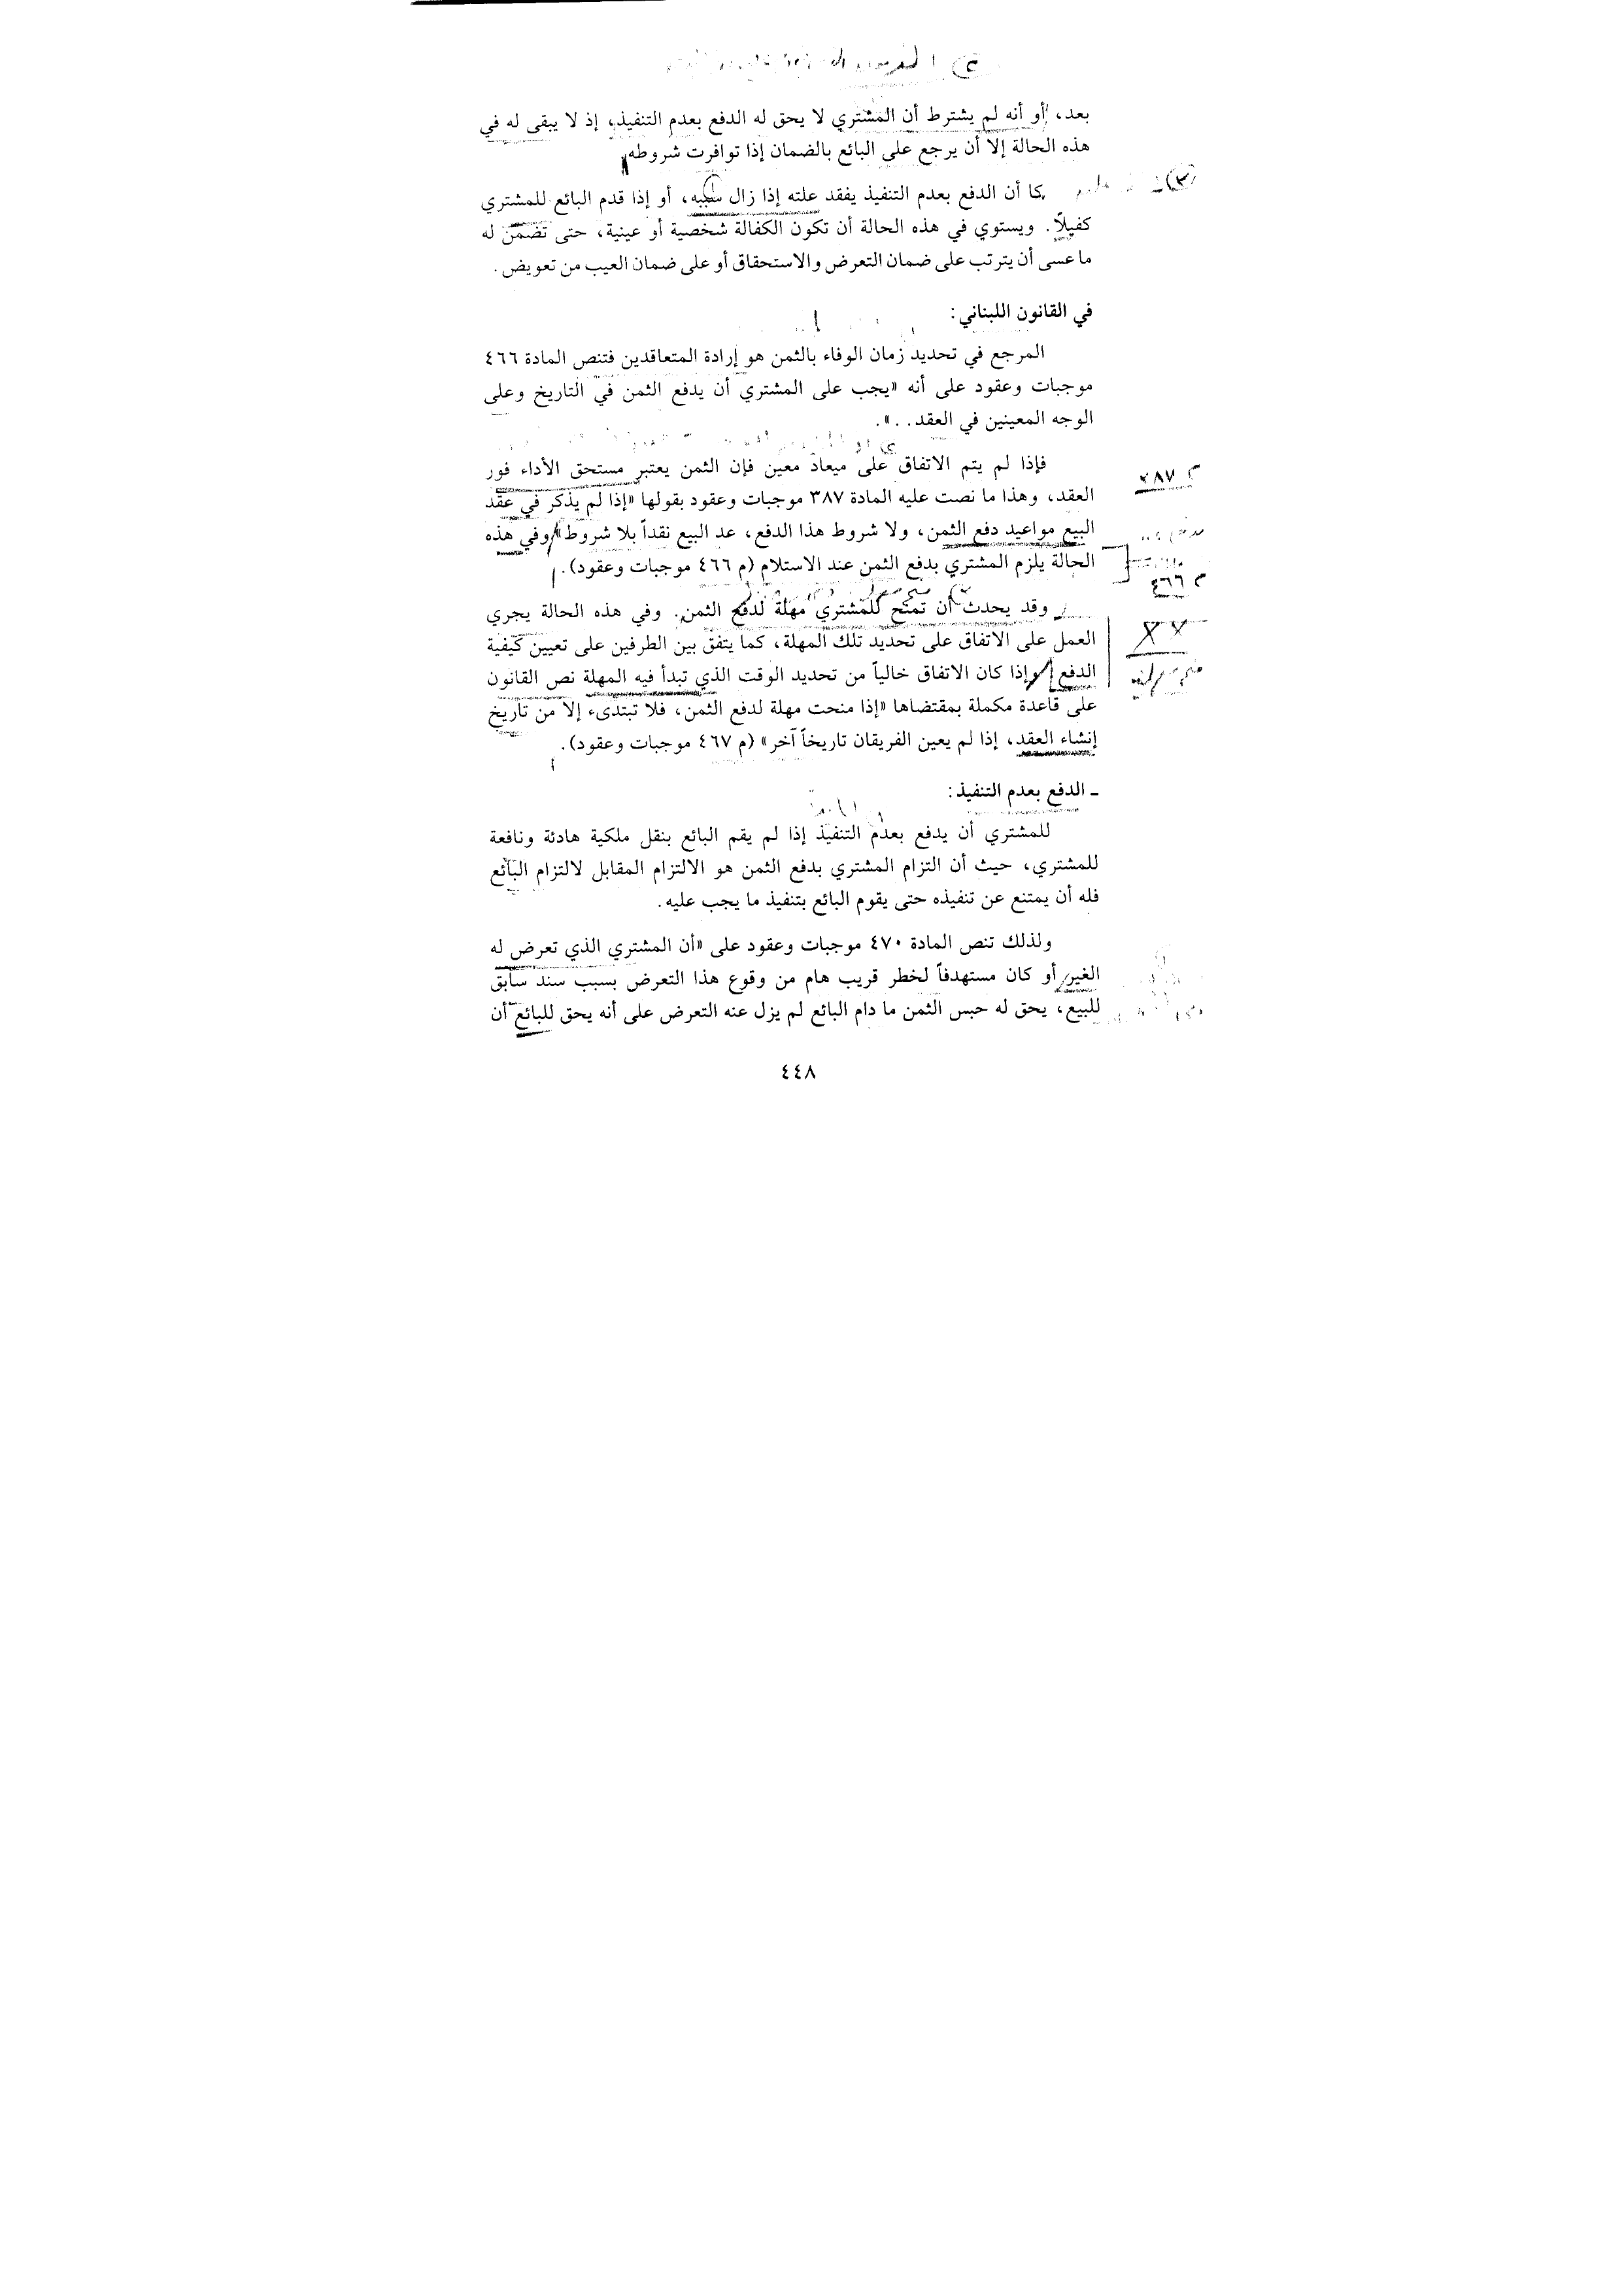 بعد، أو أنه لم يشترط أن المشتري لا يحق له الدفع بعدم التنفيذ، إذ لا يبقى له في
هذه الحالة إلا أن يرجع على البائع بالضمان إذا توافرت شروطه
كما أن الدفع بعدم التنفيذ يفقد علته إذا زال سببه، أو إذا قدم البائع للمشتري
كفيلاً. ويستوي في هذه الحالة أن تكون الكفالة شخصية أو عينية، حتى تضمن له
ما عسى أن يترتب على ضمان التعرض والاستحقاق أو على ضمان العيب من تعويض.
في القانون اللبناني:
المرجع في تحديد زمان الوفاء بالثمن هو إرادة المتعاقدين فتنص المادة ٤٦٦
موجبات وعقود على أنه «يجب على المشتري أن يدفع الثمن في التاريخ وعلى
الوجه المعينين في العقد. . ».
فإذا لم يتم الاتفاق على ميعاد معين فإن الثمن يعتبر مستحق الأداء فور
م ٣٨٧
العقد، وهذا ما نصت عليه المادة ٣٨٧ موجبات وعقود بقولها «إذا لم يذكر في عقد
البيع مواعيد دفع الثمن، ولا شروط هذا الدفع، عد البيع نقداً بلا شروط» وفي هذه
الحالة يلزم المشتري بدفع الثمن عند الاستلام (م ٤٦٦ موجبات وعقود).
م ٤٦٦
وقد يحدث أن تمنح للمشتري مهلة لدفع الثمن. وفي هذه الحالة يجري
العمل على الاتفاق على تحديد تلك المهلة، كما يتفق بين الطرفين على تعيين كيفية
الدفع وإذا كان الاتفاق خالياً من تحديد الوقت الذي تبدأ فيه المهلة نص القانون
على قاعدة مكملة بمقتضاها «إذا منحت مهلة لدفع الثمن، فلا تبتدىء إلا من تاريخ
إنشاء العقد، إذا لم يعين الفريقان تاريخاً آخر» (م ٤٦٧ موجبات وعقود).
ـ الدفع بعدم التنفيذ:
للمشتري أن يدفع بعدم التنفيذ إذا لم يقم البائع بنقل ملكية هادئة ونافعة
للمشتري، حيث أن التزام المشتري بدفع الثمن هو الالتزام المقابل لالتزام البائع
فله أن يمتنع عن تنفيذه حتى يقوم البائع بتنفيذ ما يجب عليه.
ولذلك تنص المادة ٤٧٠ موجبات وعقود على «أن المشتري الذي تعرض له
الغير أو كان مستهدفاً لخطر قريب هام من وقوع هذا التعرض بسبب سند سابق
للبيع، يحق له حبس الثمن ما دام البائع لم يزل عنه التعرض على أنه يحق للبائع أن
٤٤٨